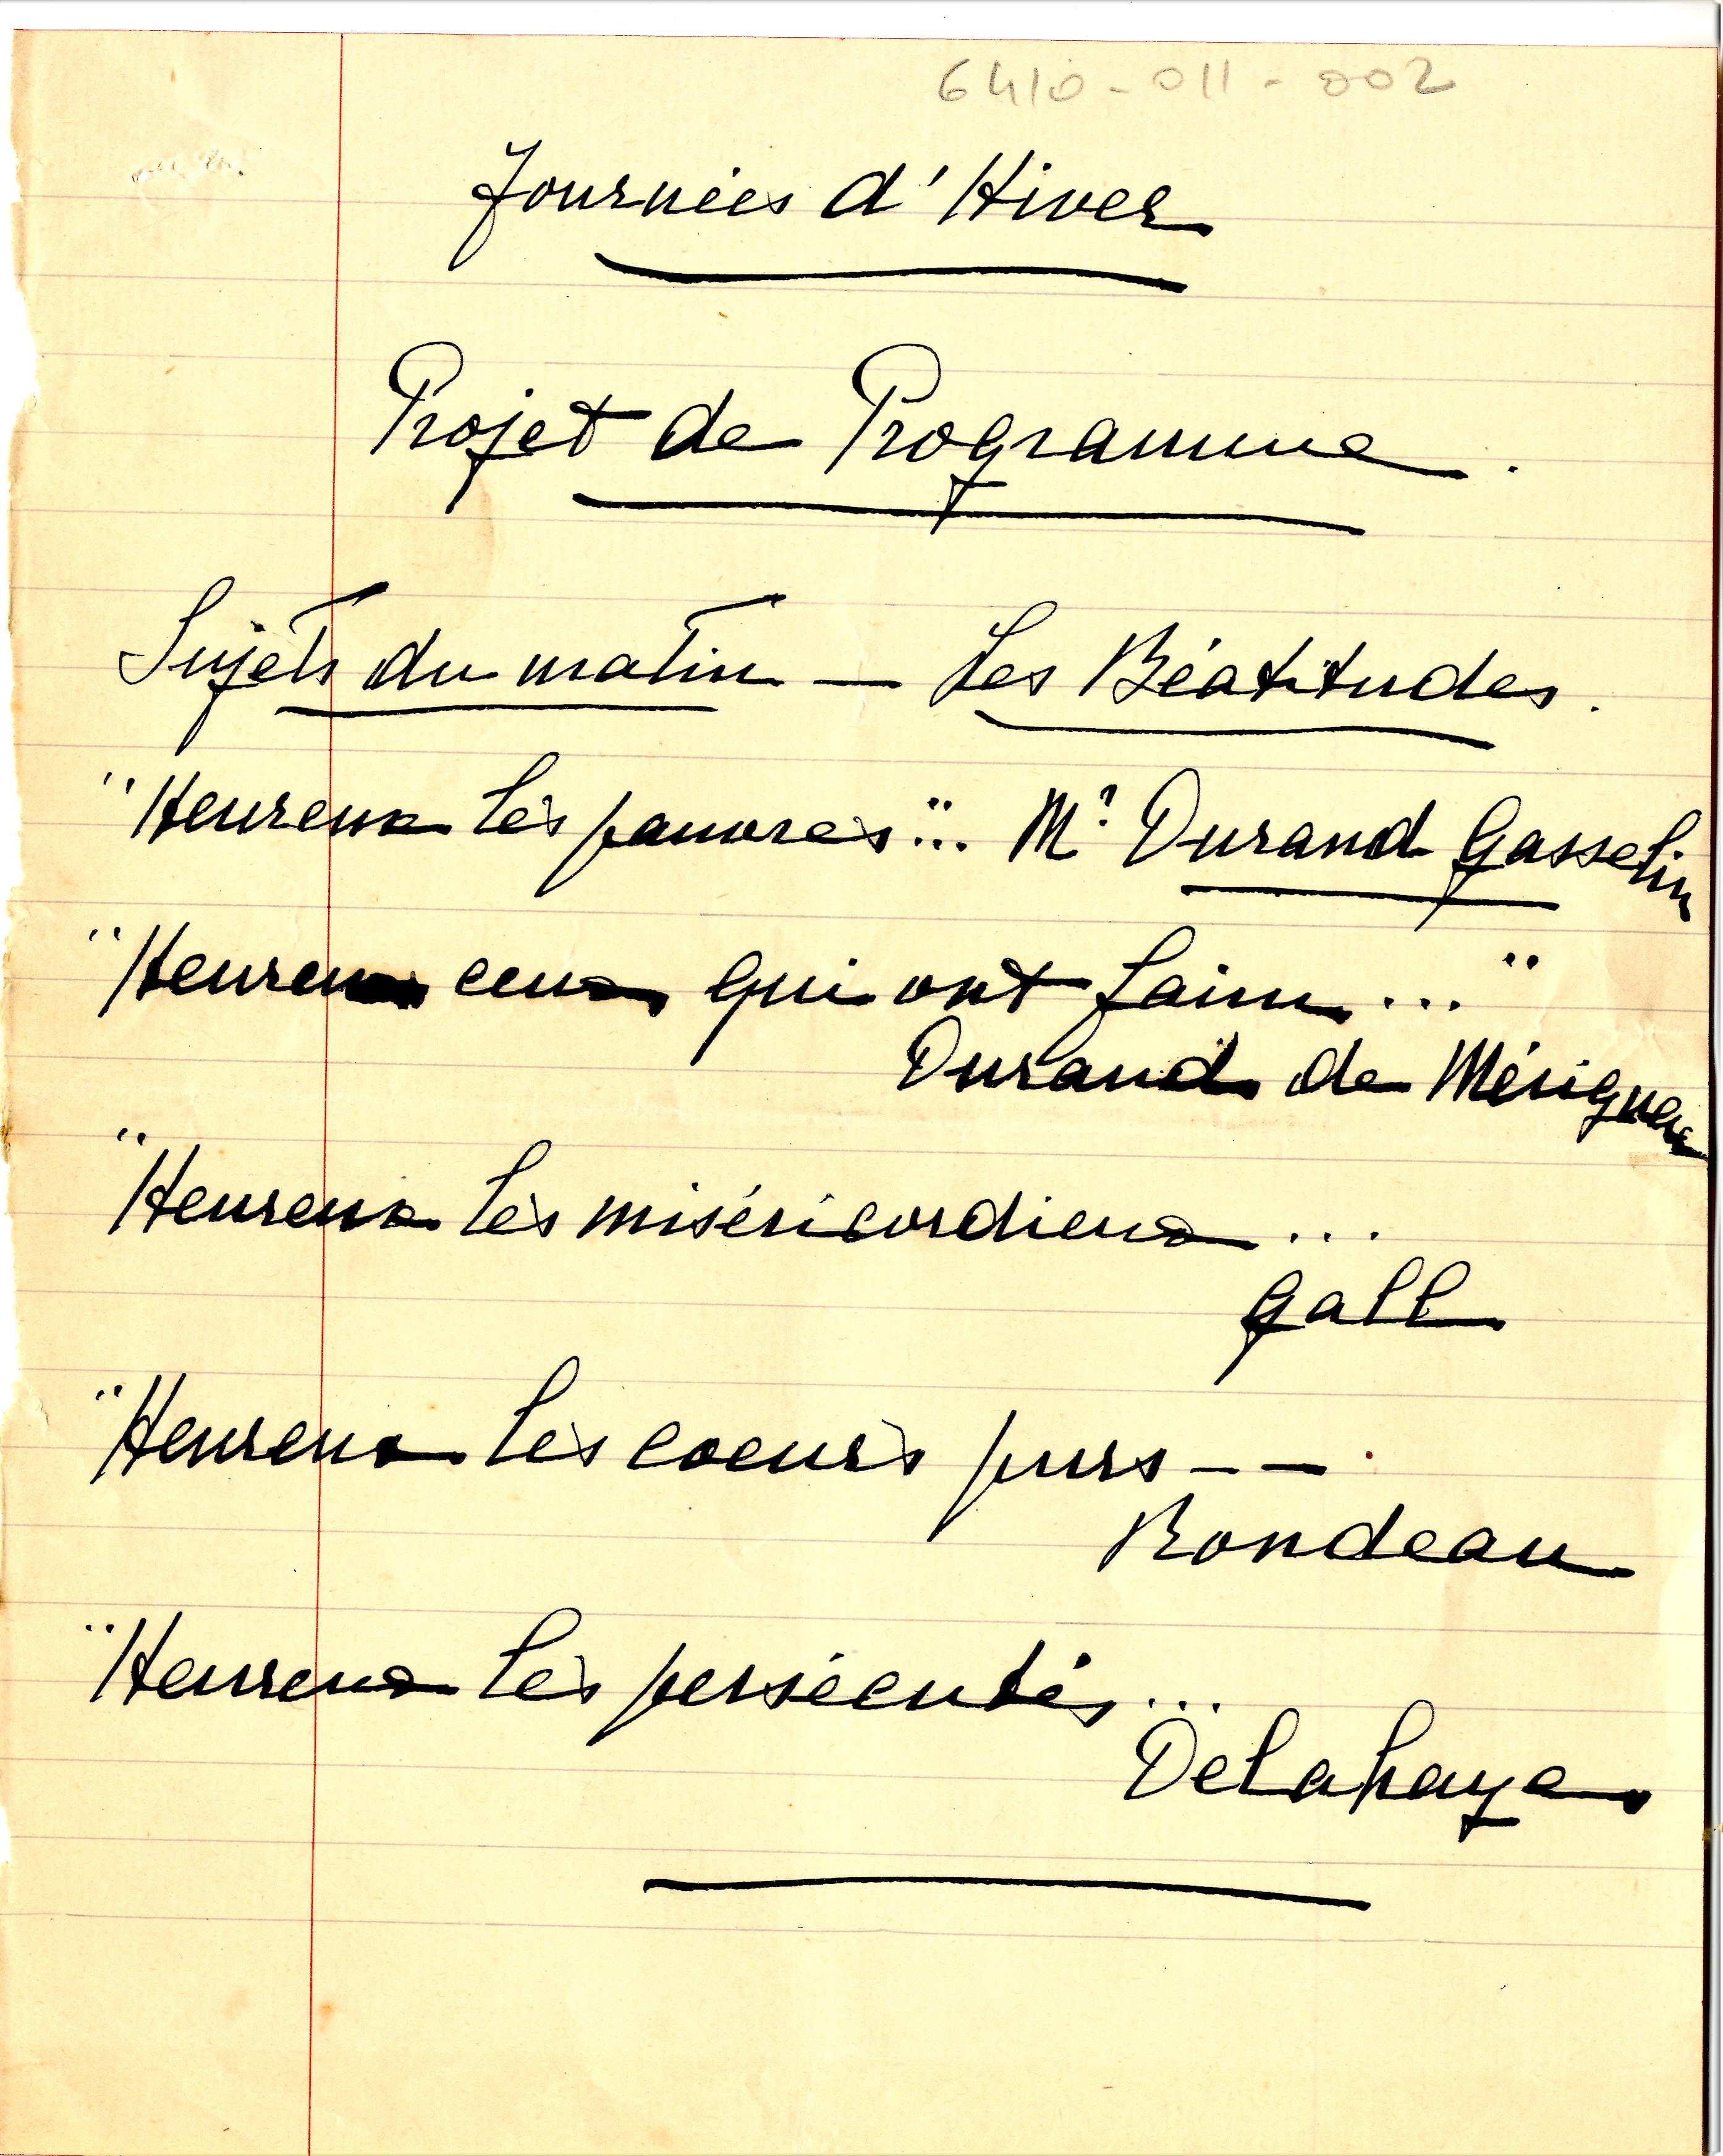 6410-011-002
Journées d'Hiver
Projet de Programme.
Sujets du matin — Les Béatitudes.
"Heureux les pauvres"... Mr Durand Gasselin
"Heureux ceux qui ont faim..."
Durand de
"Heureux les miséricordieux...
Gall
"Heureux les coeurs purs - -
Rondeau
"Heureux les persécutés...
Delahaye